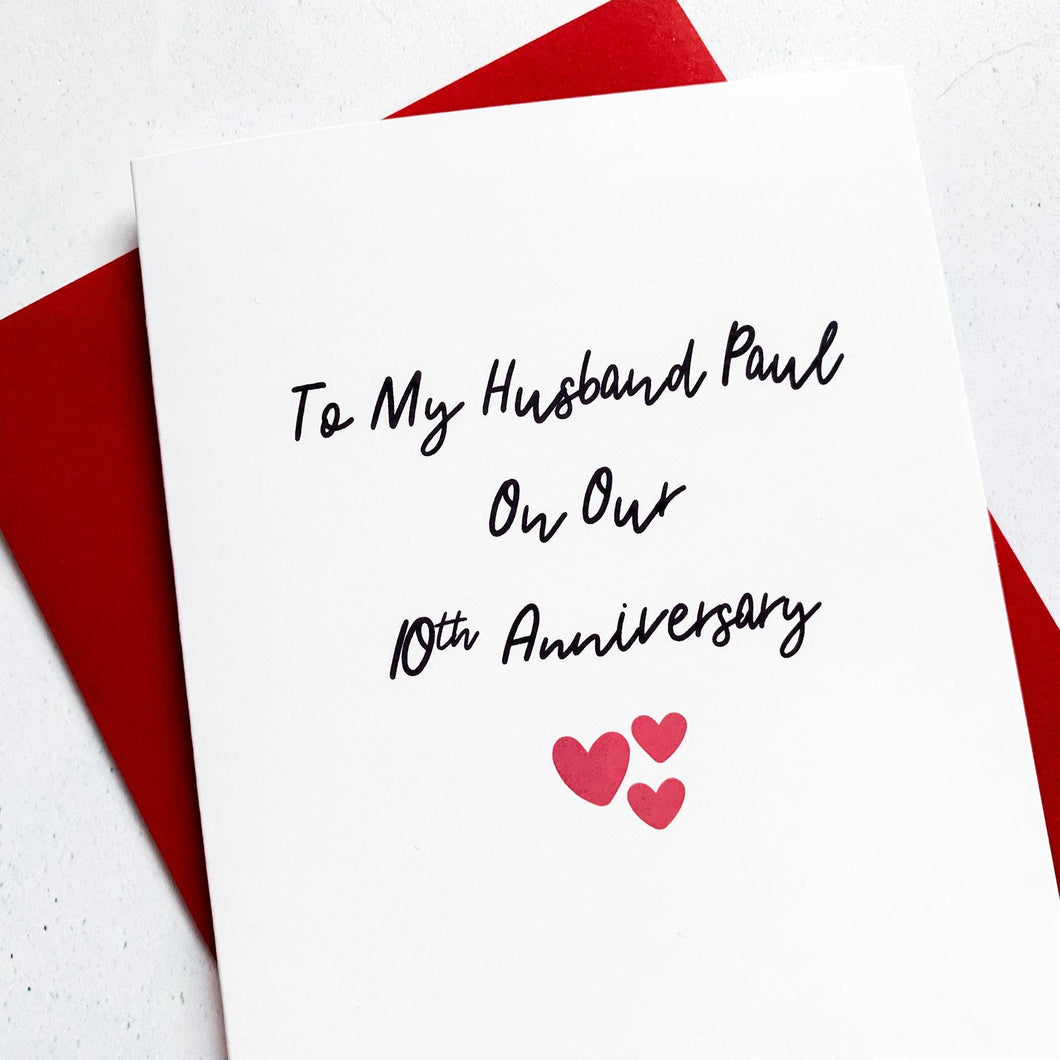 To My Husband Paul
On Our
10th Anniversary